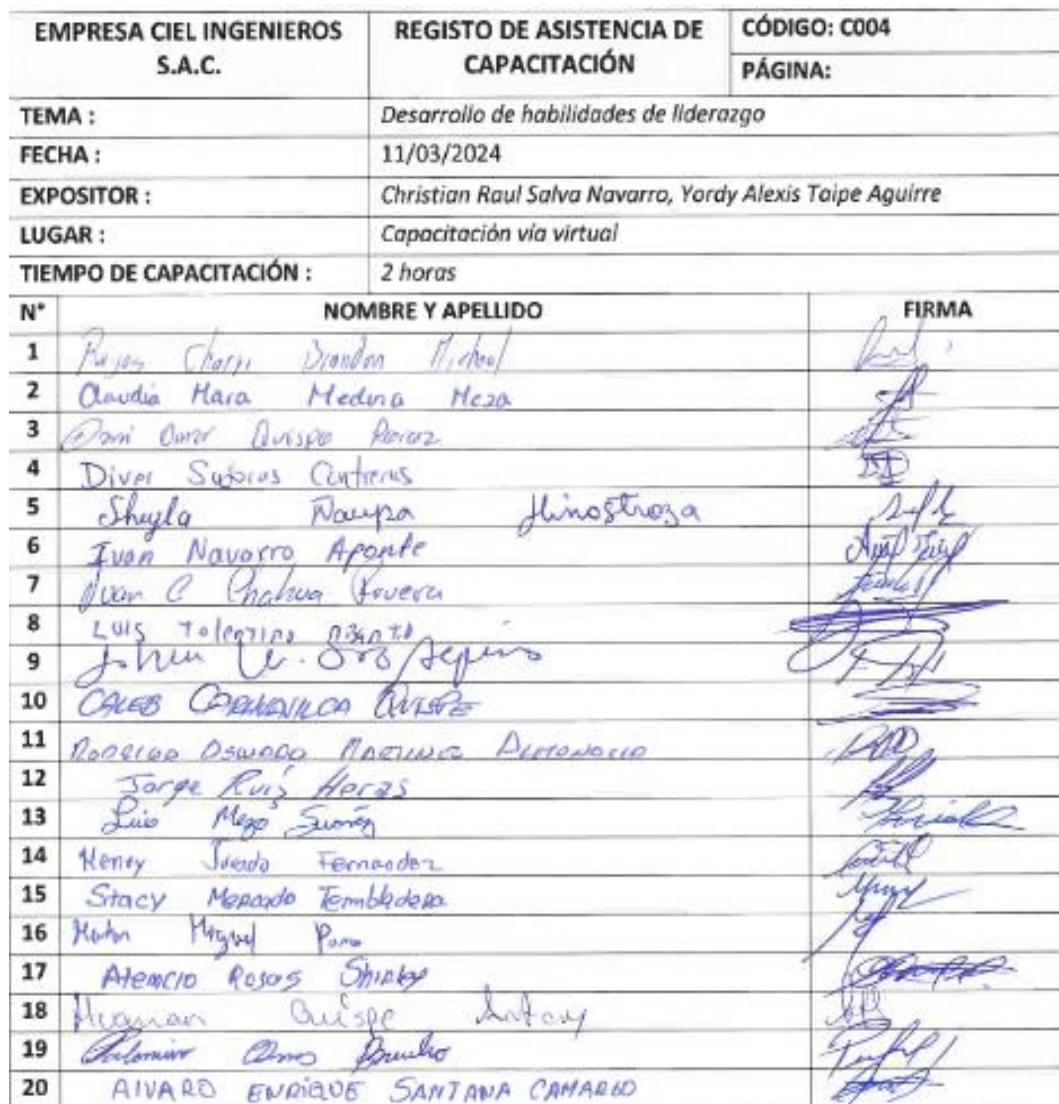 EMPRESA CIEL INGENIEROS S.A.C.
REGISTO DE ASISTENCIA DE CAPACITACIÓN
CÓDIGO: C004
PÁGINA:
TEMA : Desarrollo de habilidades de liderazgo
FECHA : 11/03/2024
EXPOSITOR : Christian Raul Salva Navarro, Yordy Alexis Taipe Aguirre
LUGAR : Capacitación vía virtual
TIEMPO DE CAPACITACIÓN : 2 horas
N° NOMBRE Y APELLIDO FIRMA
1 Rojas Brandon Michael
2 Claudia Mara Medina Meza
3 Omar Quispe
4 Diver Contreras
5 Sheyla Ñaupa Hinostroza
6 Ivan Navarro Aponte
7 Juan C Chahua
8 LUIS Tolentino
9
10 CALEB QUISPE
11 RODRIGO OSWALDO MARTINEZ
12 Jorge Ruis
13 Luis Meza
14 Henry Jurado Fernandez
15 Stacy Mercado Tembladera
16 Miguel
17 Atencio Rosas Shirley
18 Huaman Quispe Antony
19
20 ALVARO ENRIQUE SANTANA CAMARGO